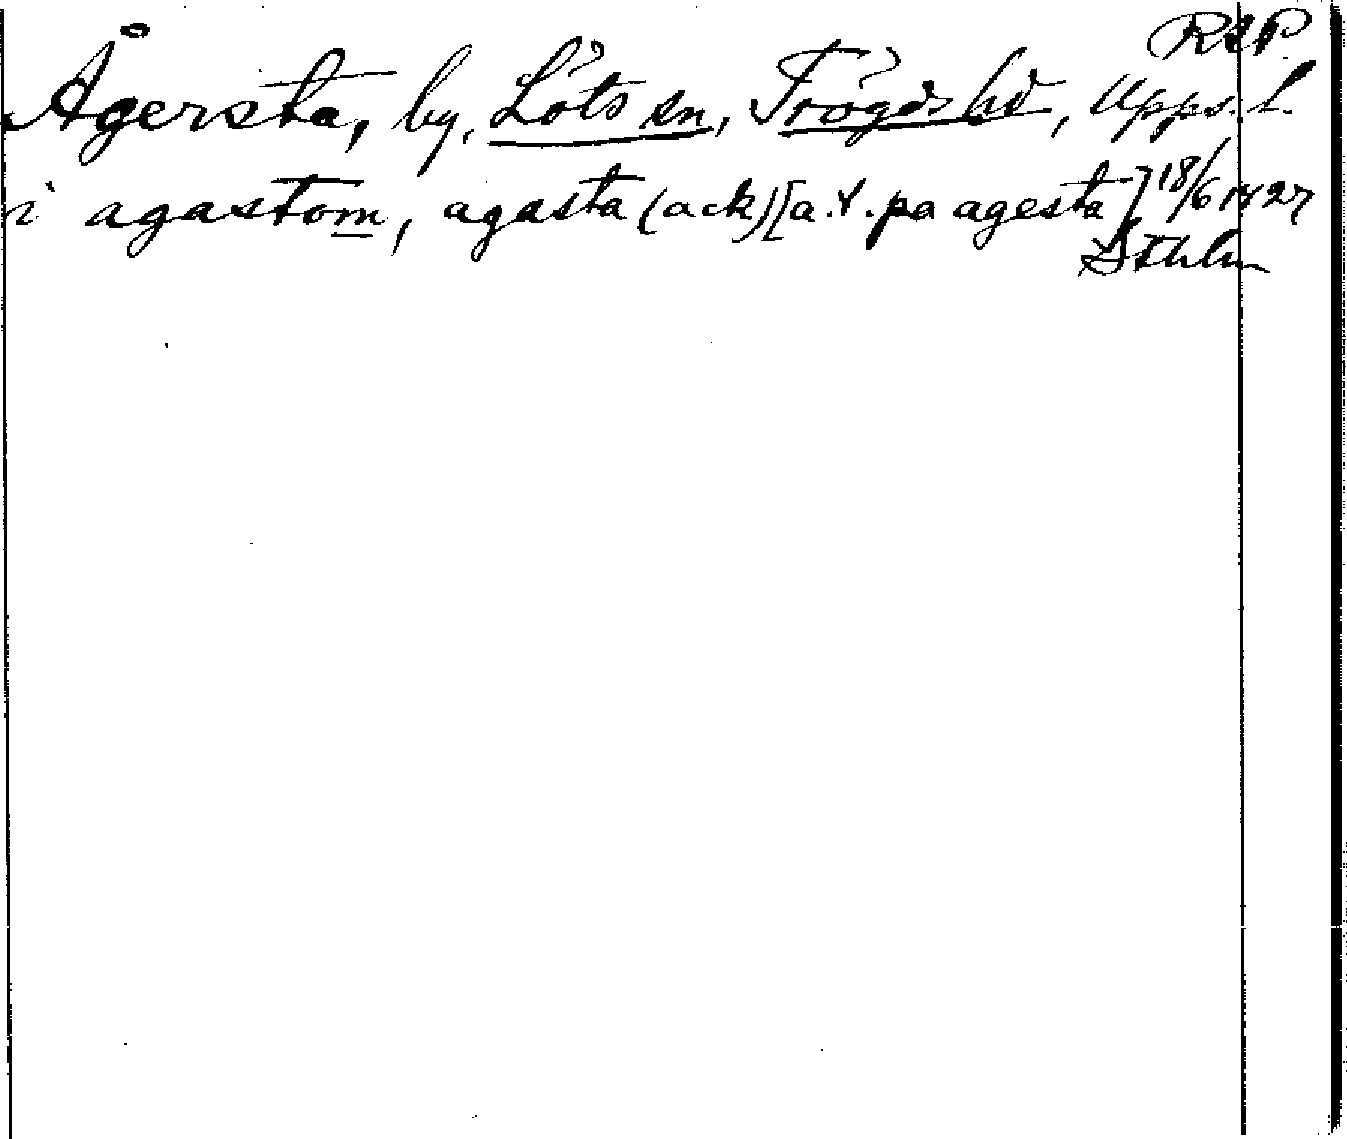 RAP
Ågersta, by, Löts sn, Trögds hd, Upps. l.
i agastom, agasta (ack) [a. t. pa agesta] 18/6 1427
Sthlm